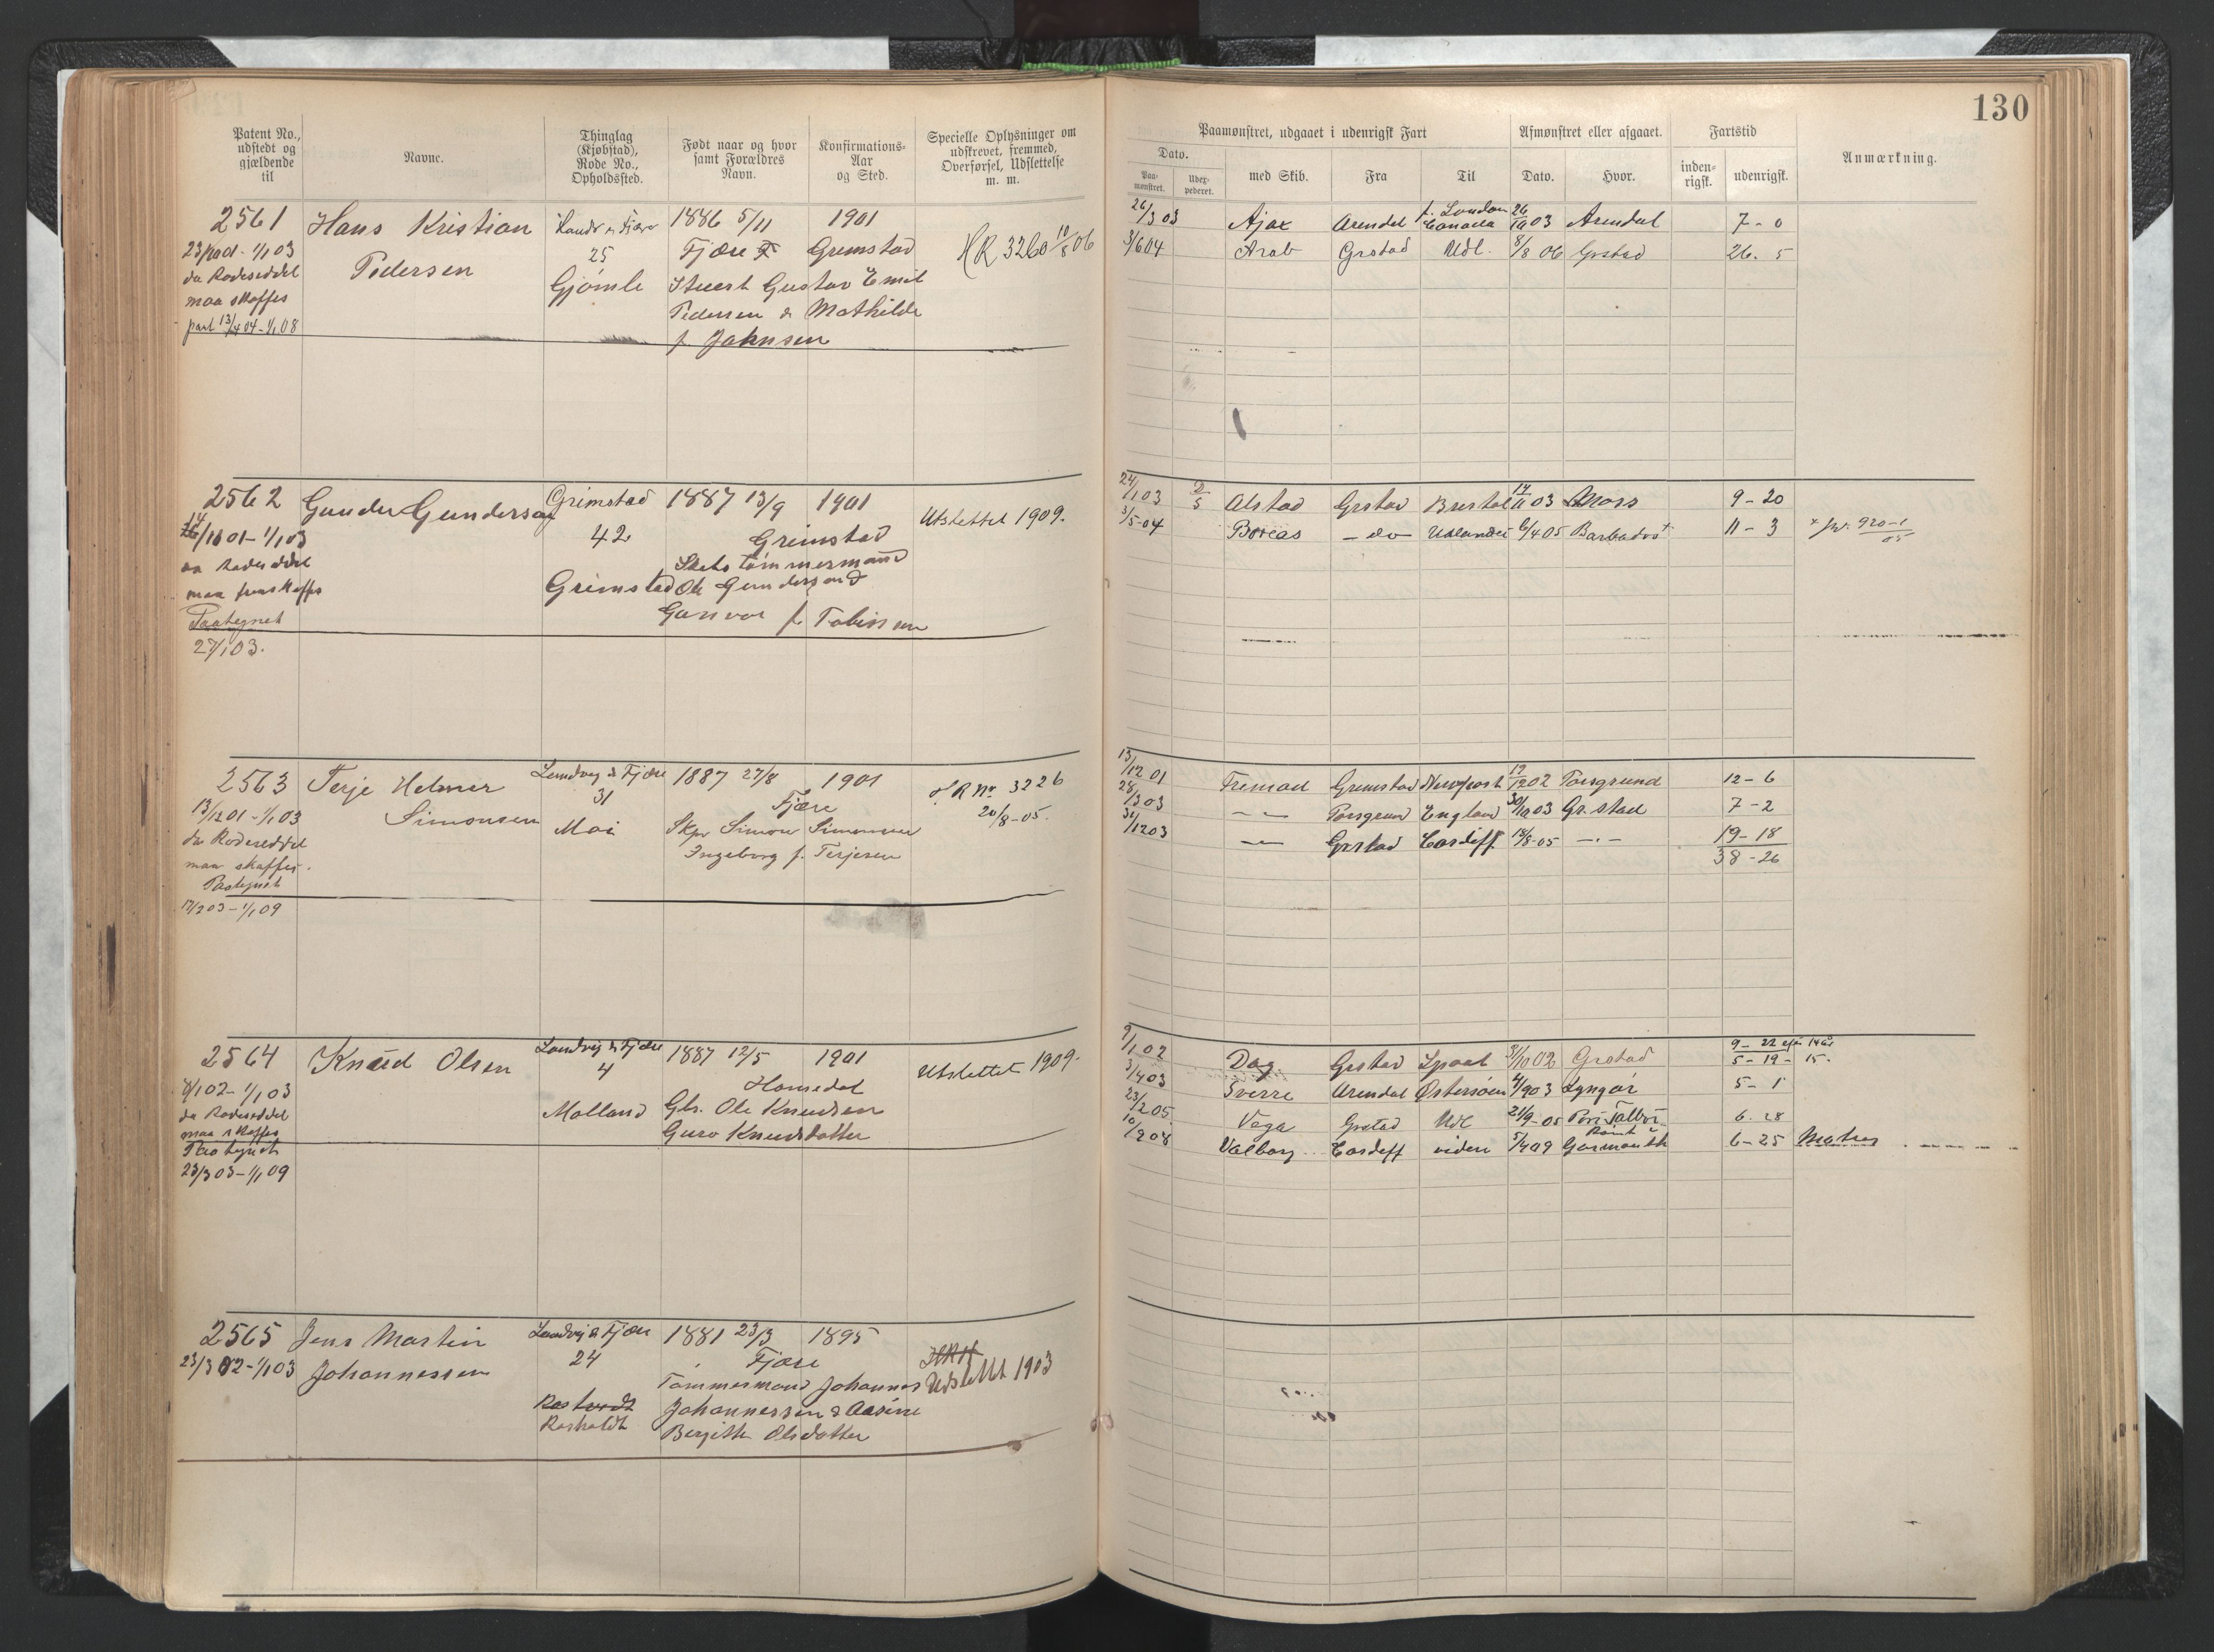 130
Patent No., udstedt og gjældende til
Navne.
Thinglag (Kjøbstad), Rode No., Opholdssted.
Født naar og hvor samt Forældres Navn.
Konfirmations-Aar og Sted.
Specielle Oplysninger om udskrevet, fremmed, Overførsel, Udslettelse m. m.
Paamønstret, udgaaet i udenrigsk Fart
Afmønstret eller afgaaet.
Fartstid
Anmærkning.
Dato.
Paa-mønstret.
Udex-pederet.
med Skib.
Fra
Til
Dato.
Hvor.
inden-rigsk.
udenrigsk.
2561 Hans Kristian 1886 5/11 1901
25 Fjære Grimstad HR 3260 10/8 06
da Rodeseddel Pedersen
maa skaffes Gjømle Gustav Emil
Pedersen & Mathilde
13/4 04 - 1/1 08
f. Johnsen
26/3 03 Ajax Arendal London Canada 26/10 03 Arendal 7 - 0
3/6 04 Arab Grstad Udl. 8/8 06 Grstad 26. 5
2562 Gunder Gundersen Grimstad 1887 13/9 1901 Utslettet 1909.
01 - 1/1 03 42 Grimstad
Rodeseddel Skibstømmermand
maa Grimstad Ole Gunderson &
Paategnet Gunvor f. Tobissen
27/1 03.
24/1 03 2/5 Alstad Grstad Bristol 14/11 03 Moss 9 - 20
3/5 - 04 Boreas - do - Udlandet 6/4 05 Barbados 11 - 3
2563 Terje Helmer Landvig & Fjære 1887 27/8 1901
13/12 01 - 1/1 03 Simonsen 31 Fjære HR No. 3226
da Rodeseddel Moi Skpr Simon Simonsen 20/8 - 05.
maa skaffes. Ingeborg f. Terjesen
Paategnet
17/3 03 - 1/1 09
13/12 01 Fremad Grimstad Newport 19/12 02 Porsgrund 12 - 6
28/3 03 — Porsgrun England 30/10 03 Gr.stad 7 - 2
31/12 03 — Grstad Cardiff 18/8 - 05 - . - 19 - 18
38 - 26
2564 Knud Olsen Landvig & Fjære 1887 12/5 1901 Utslettet 1909.
1 02 - 1/1 03 4 Homedal
da Rodeseddel Molland Gbr. Ole Knudsen
maa skaffes Guro Knudsdatter
Paategnet
23/3 03 - 1/1 09
9/1 02 Dag Grstad 3/10 02 Grstad 5 - 19 - 15.
3/4 03 Sverre Arendal Østersøen 4/9 03 Lyngør 5 - 1
23/2 05 Vega Grstad Udl 21/9 - 05 Port Talbot 6. 28
10/2 08 Valborg Cardiff videre 5/4 09 Garmouth 6 - 25 Matros
2565 Jens Martin Landvig & Fjære 1881 23/3 1895
23/3 02 - 1/1 03 Johannessen 24 Fjære Udslettet 1903
Tømmermand Johannes
Johannessen & Aasine
Rosholdt Birgitte Olsdatter